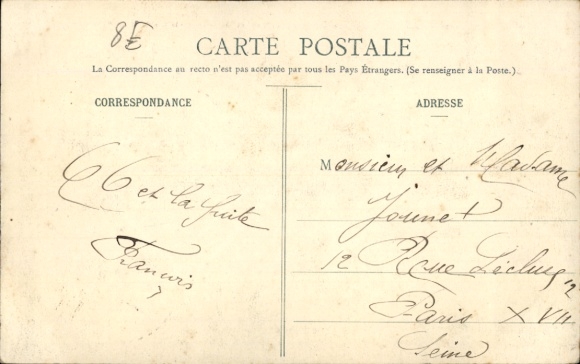 8E
CARTE POSTALE
La Correspondance au recto n'est pas acceptée par tous les Pays Étrangers. (Se renseigner à la Poste.)
CORRESPONDANCE
et la suite
François
ADRESSE
Monsieur et Madame
Jounet
12 Rue Lécluse 12
Paris XVII
Seine